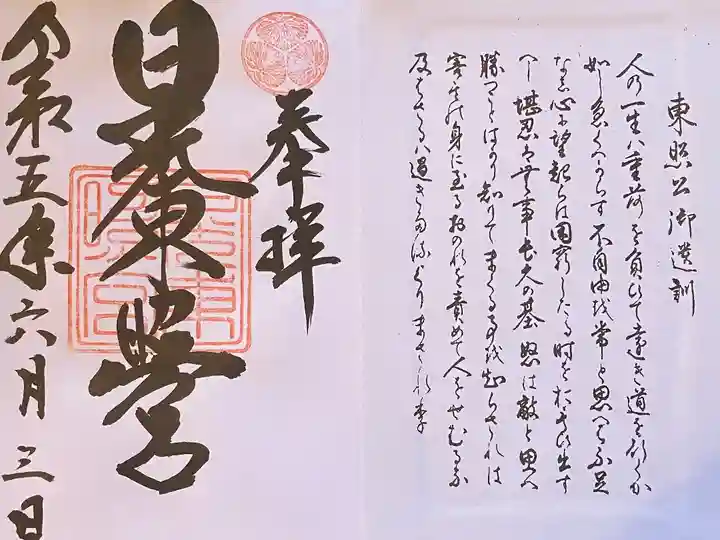 東照公御遺訓
人の一生ハ重荷を負ひて遠き道を行くか
如し急くへからす不自由を常と思へハ不足
なし心に望起らは困窮したる時を思ひ出す
へし堪忍は無事長久の基怒は敵と思へ
勝つことはかり知りてまくる事を知らされは
害其の身に至るおのれを責めて人をせむるな
及はさるハ過きたるよりまされり
奉拝
日光東照宮
令和五年六月三日